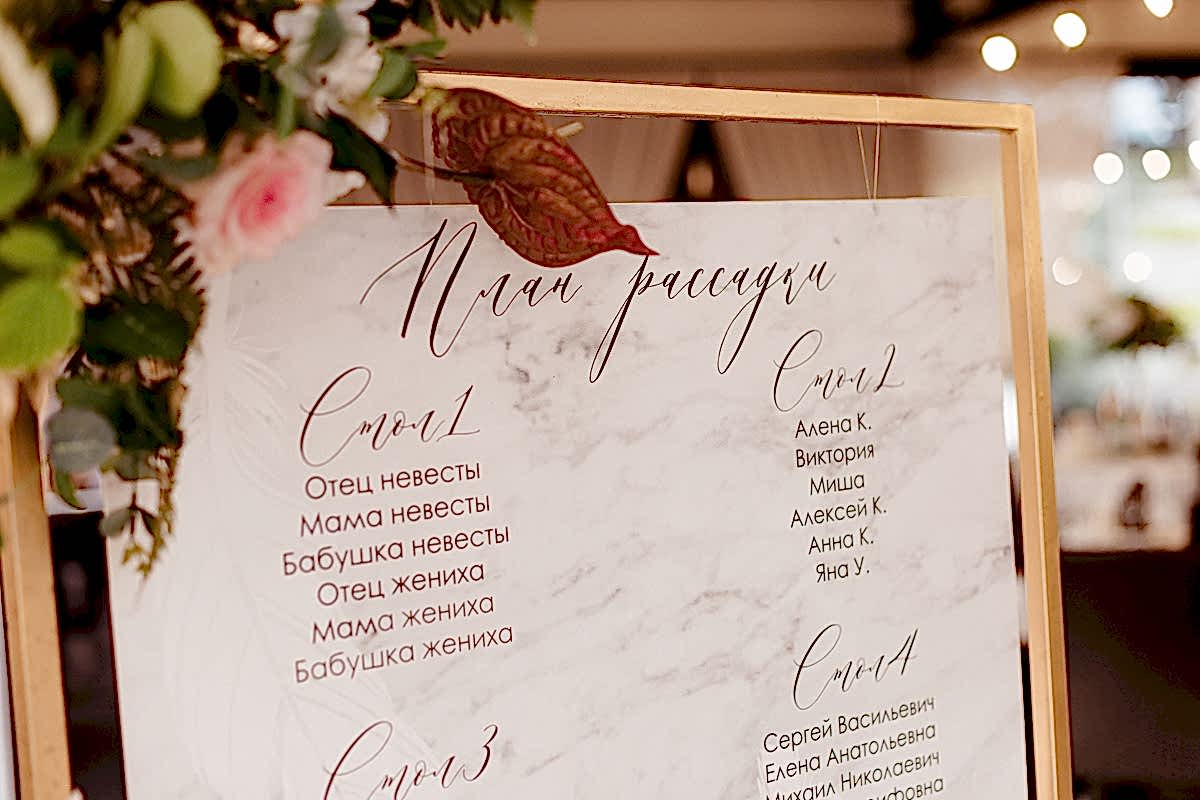 План рассадки
Стол 1
Отец невесты
Мама невесты
Бабушка невесты
Отец жениха
Мама жениха
Бабушка жениха
Стол 2
Алена К.
Виктория
Миша
Алексей К.
Анна К.
Яна У.
Стол 3
Стол 4
Сергей Васильевич
Елена Анатольевна
Михаил Николаевич
4